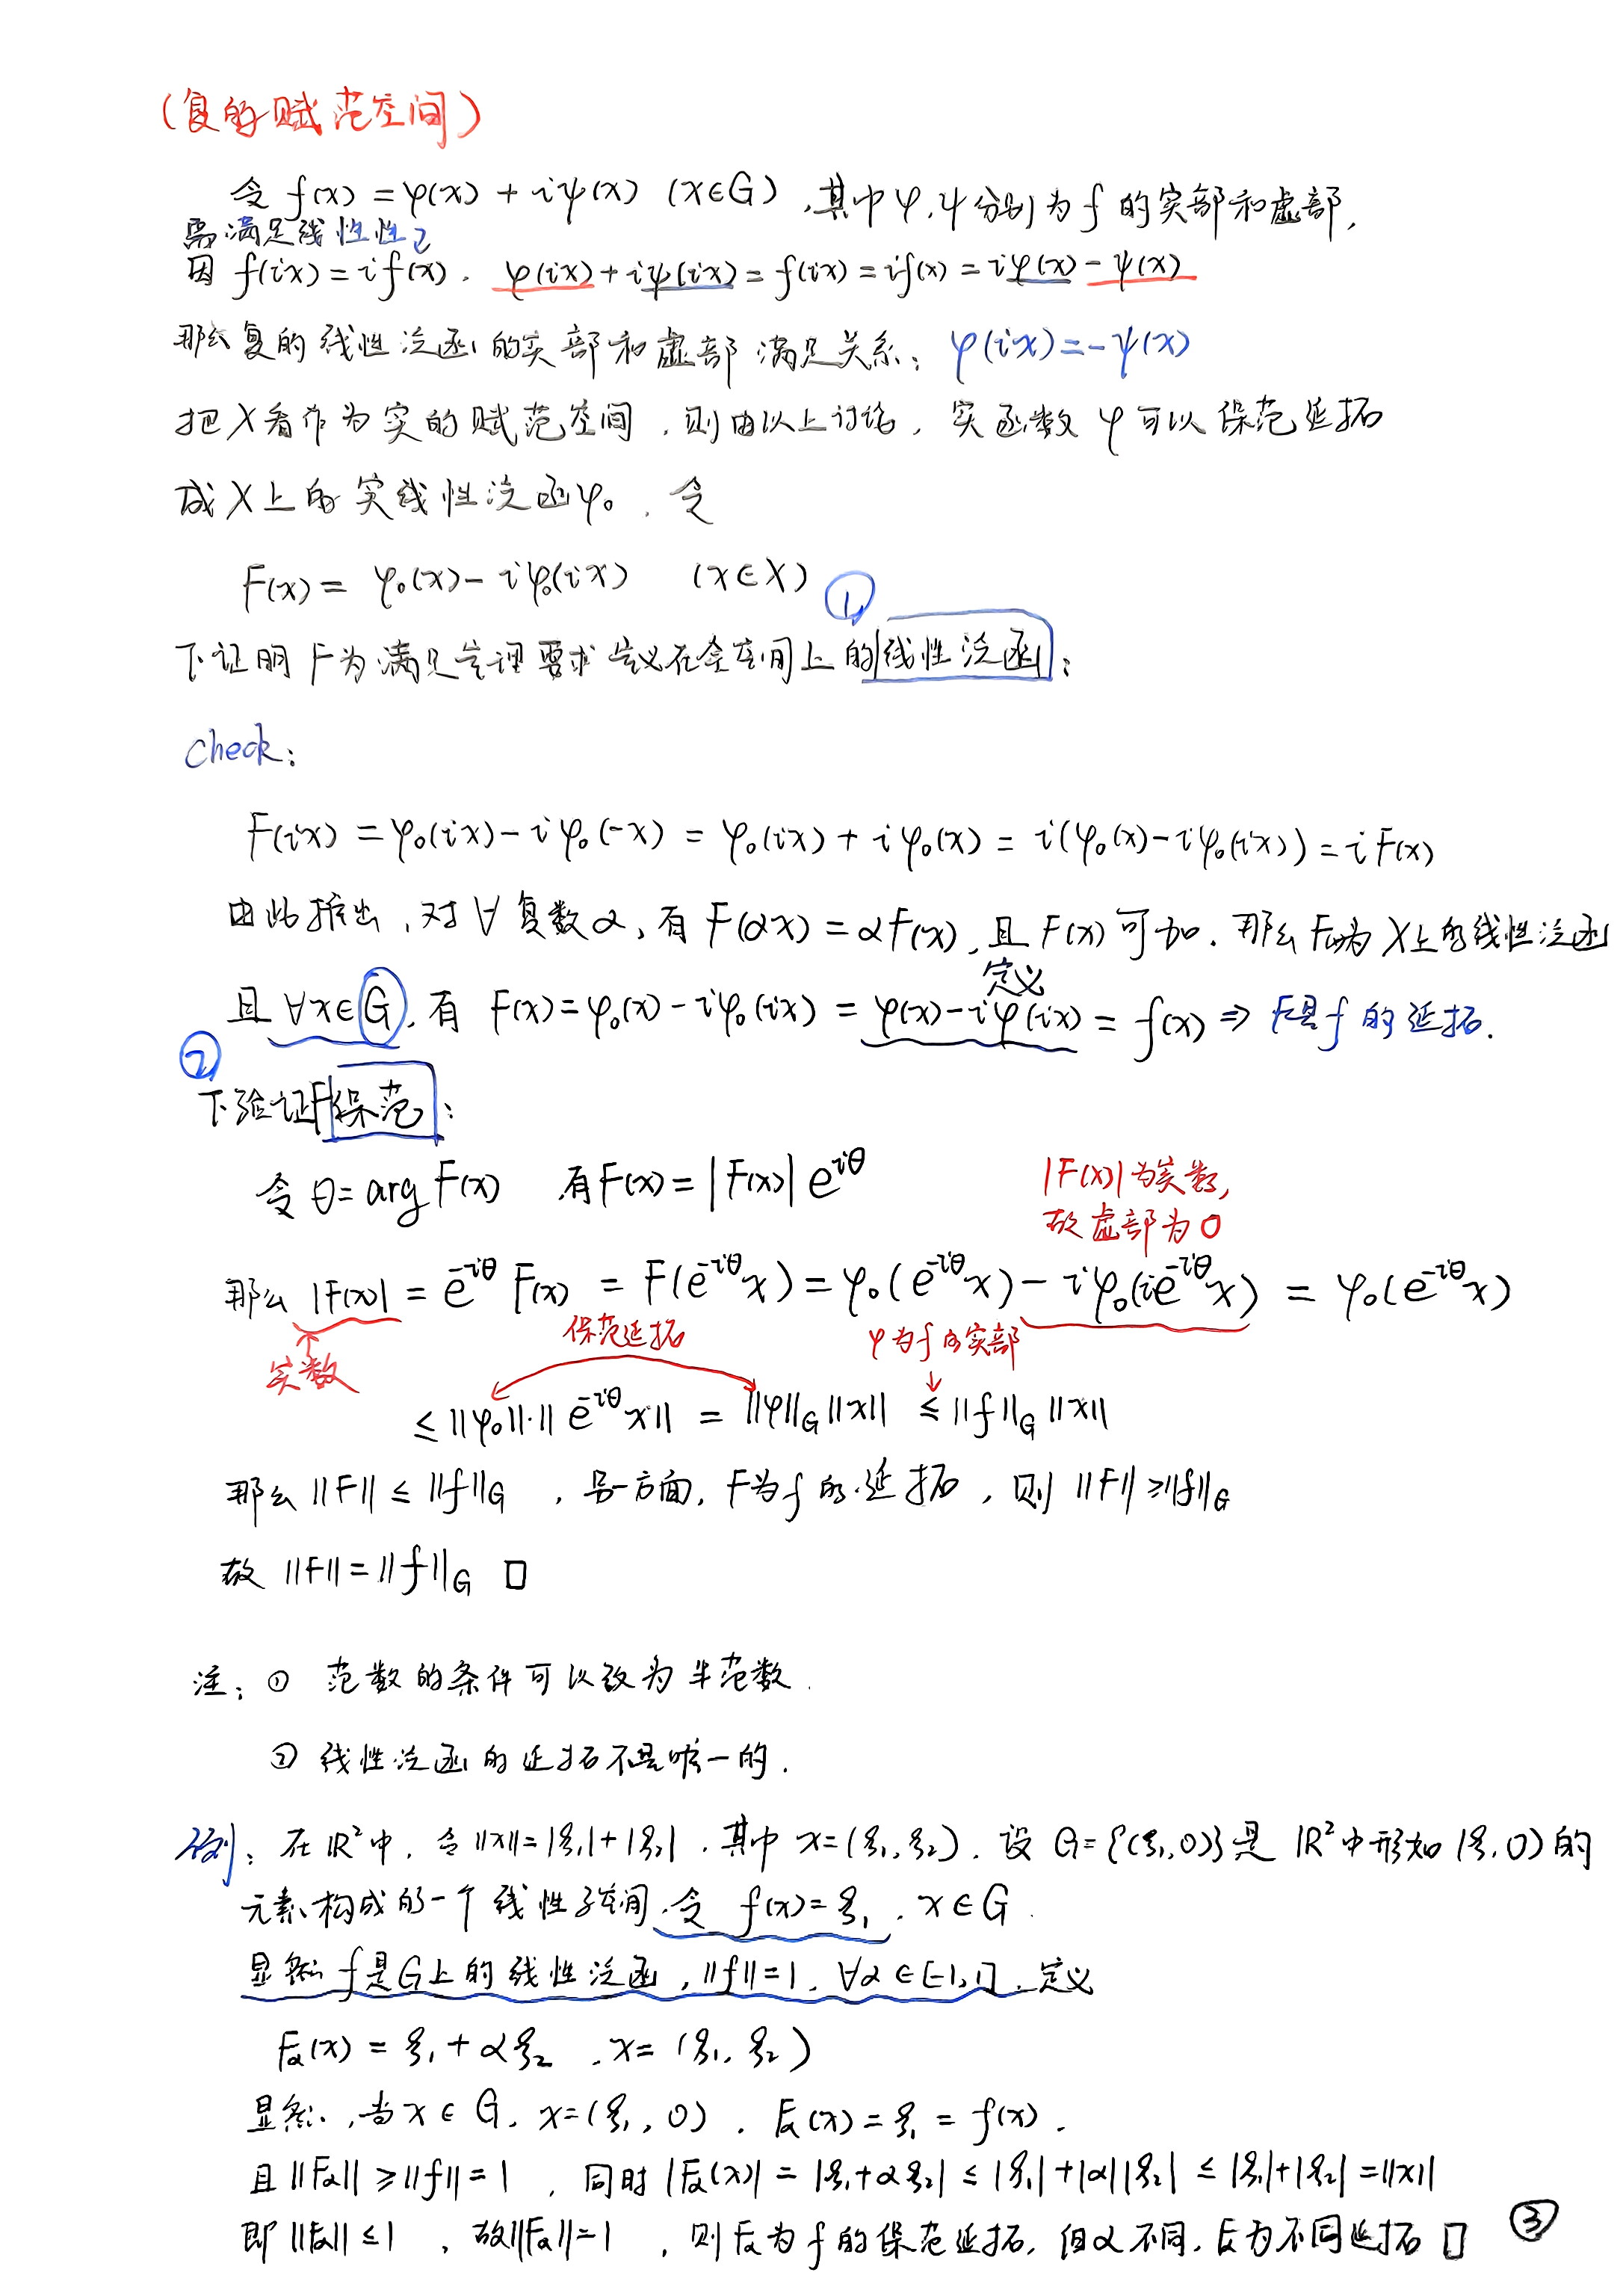 (复的赋范空间)
令 f(x) = φ(x) + iψ(x) (x∈G), 其中 φ, ψ 分别为 f 的实部和虚部,
需满足线性性
因 f(ix) = if(x). φ(ix) + iψ(ix) = f(ix) = if(x) = iφ(x) - ψ(x)
那么复的线性泛函的实部和虚部满足关系: φ(ix) = -ψ(x)
把X看作为实的赋范空间, 则由以上讨论, 实函数 φ 可以保范延拓
成X上的实线性泛函φ₀. 令
F(x) = φ₀(x) - iφ₀(ix) (x∈X)
①
下证明 F为满足定理要求定义在全空间上的线性泛函:
Check:
F(ix) = φ₀(ix) - iφ₀(-x) = φ₀(ix) + iφ₀(x) = i(φ₀(x) - iφ₀(ix)) = iF(x)
由此推出, 对∀复数α, 有 F(αx) = αF(x), 且 F(x) 可加. 那么 F(x)为 X上的线性泛函
定义
且 ∀x∈G, 有 F(x) = φ₀(x) - iφ₀(ix) = φ(x) - iφ(ix) = f(x) ⇒ F是f 的延拓.
②
下验证F保范:
令 θ = arg F(x) 有 F(x) = |F(x)| e^{iθ}
|F(x)| 为实数,
故虚部为0
那么 |F(x)| = e^{-iθ} F(x) = F(e^{-iθ}x) = φ₀(e^{-iθ}x) - iφ₀(ie^{-iθ}x) = φ₀(e^{-iθ}x)
实数
保范延拓
φ为f的实部
≤ ||φ₀||·||e^{-iθ}x|| = ||φ||_G ||x|| ≤ ||f||_G ||x||
那么 ||F|| ≤ ||f||_G , 另一方面, F为f 的延拓, 则 ||F|| ≥ ||f||_G
故 ||F|| = ||f||_G □
注: ① 范数的条件可以改为半范数.
② 线性泛函的延拓不是唯一的.
例: 在 ℝ² 中, 令 ||x|| = |ξ₁| + |ξ₂|, 其中 x = (ξ₁, ξ₂). 设 G = {(ξ₁, 0)} 是 ℝ² 中形如 (ξ, 0) 的
元素构成的一个线性子空间. 令 f(x) = ξ₁, x∈G.
显然 f是G上的线性泛函, ||f|| = 1, ∀α∈[-1,1], 定义
F_α(x) = ξ₁ + αξ₂ , x = (ξ₁, ξ₂)
显然, 当 x∈G, x = (ξ₁, 0), F_α(x) = ξ₁ = f(x).
且 ||F_α|| ≥ ||f|| = 1 , 同时 |F_α(x)| = |ξ₁ + αξ₂| ≤ |ξ₁| + |α||ξ₂| ≤ |ξ₁| + |ξ₂| = ||x||
即 ||F_α|| ≤ 1 , 故||F_α|| = 1 , 则 F_α 为 f 的保范延拓, 但α不同, F_α为不同延拓 □
③